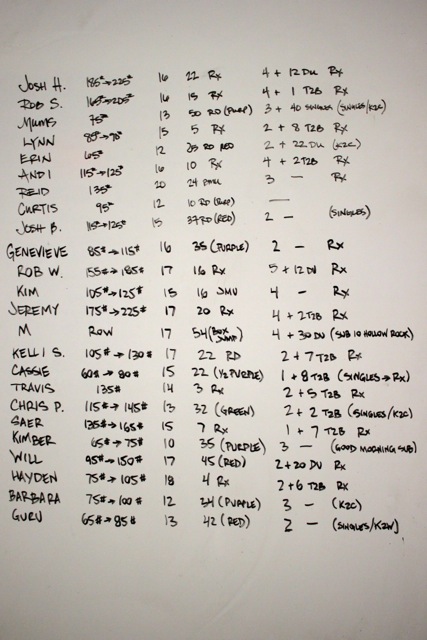 JOSH H. 185#→225# 16 22 Rx 4 + 12 DU Rx
ROB S. 165#→205# 16 15 Rx 4 + 1 T2B Rx
MUMS 75# 13 50 RD (PURP) 3 + 40 SINGLES (SINGLES/K2C)
LYNN 15 5 Rx 2 + 8 T2B Rx
ERIN 65# 12 RD RED 2 + 22 DU (K2C)
ANDI 115#→125# 16 10 Rx 4 + 2 T2B Rx
REID 135# 20 24 3 — Rx
CURTIS 95# 12 10 RD —
JOSH B. 115#→125# 15 37 RD (RED) 2 — (SINGLES)
GENEVIEVE 85#→115# 16 35 (PURPLE) 2 — Rx
ROB W. 155#→185# 17 16 Rx 5 + 12 DU Rx
KIM 105#→125# 15 16 JMU 4 — Rx
JEREMY 175#→225# 17 20 Rx 4 + 2 T2B Rx
M ROW 17 54 (BOX JUMP) 4 + 30 DU (SUB 10 HOLLOW ROCK)
KELLI S. 105#→130# 17 22 RD 2 + 7 T2B Rx
CASSIE 60#→80# 15 22 (1/2 PURPLE) 1 + 8 T2B (SINGLES→Rx)
TRAVIS 135# 14 3 Rx 2 + 5 T2B Rx
CHRIS P. 115#→145# 13 32 (GREEN) 2 + 2 T2B (SINGLES/K2C)
SAER 135#→165# 15 7 Rx 1 + 7 T2B Rx
KIMBER 65#→75# 10 35 (PURPLE) 3 — (GOOD MORNING SUB)
WILL 95#→150# 17 45 (RED) 2+20 DU Rx
HAYDEN 75#→105# 18 4 Rx 2+6 T2B Rx
BARBARA 75#→100# 12 34 (PURPLE) 3 — (K2C)
GURU 65#→85# 13 42 (RED) 2 — (SINGLES/K2W)